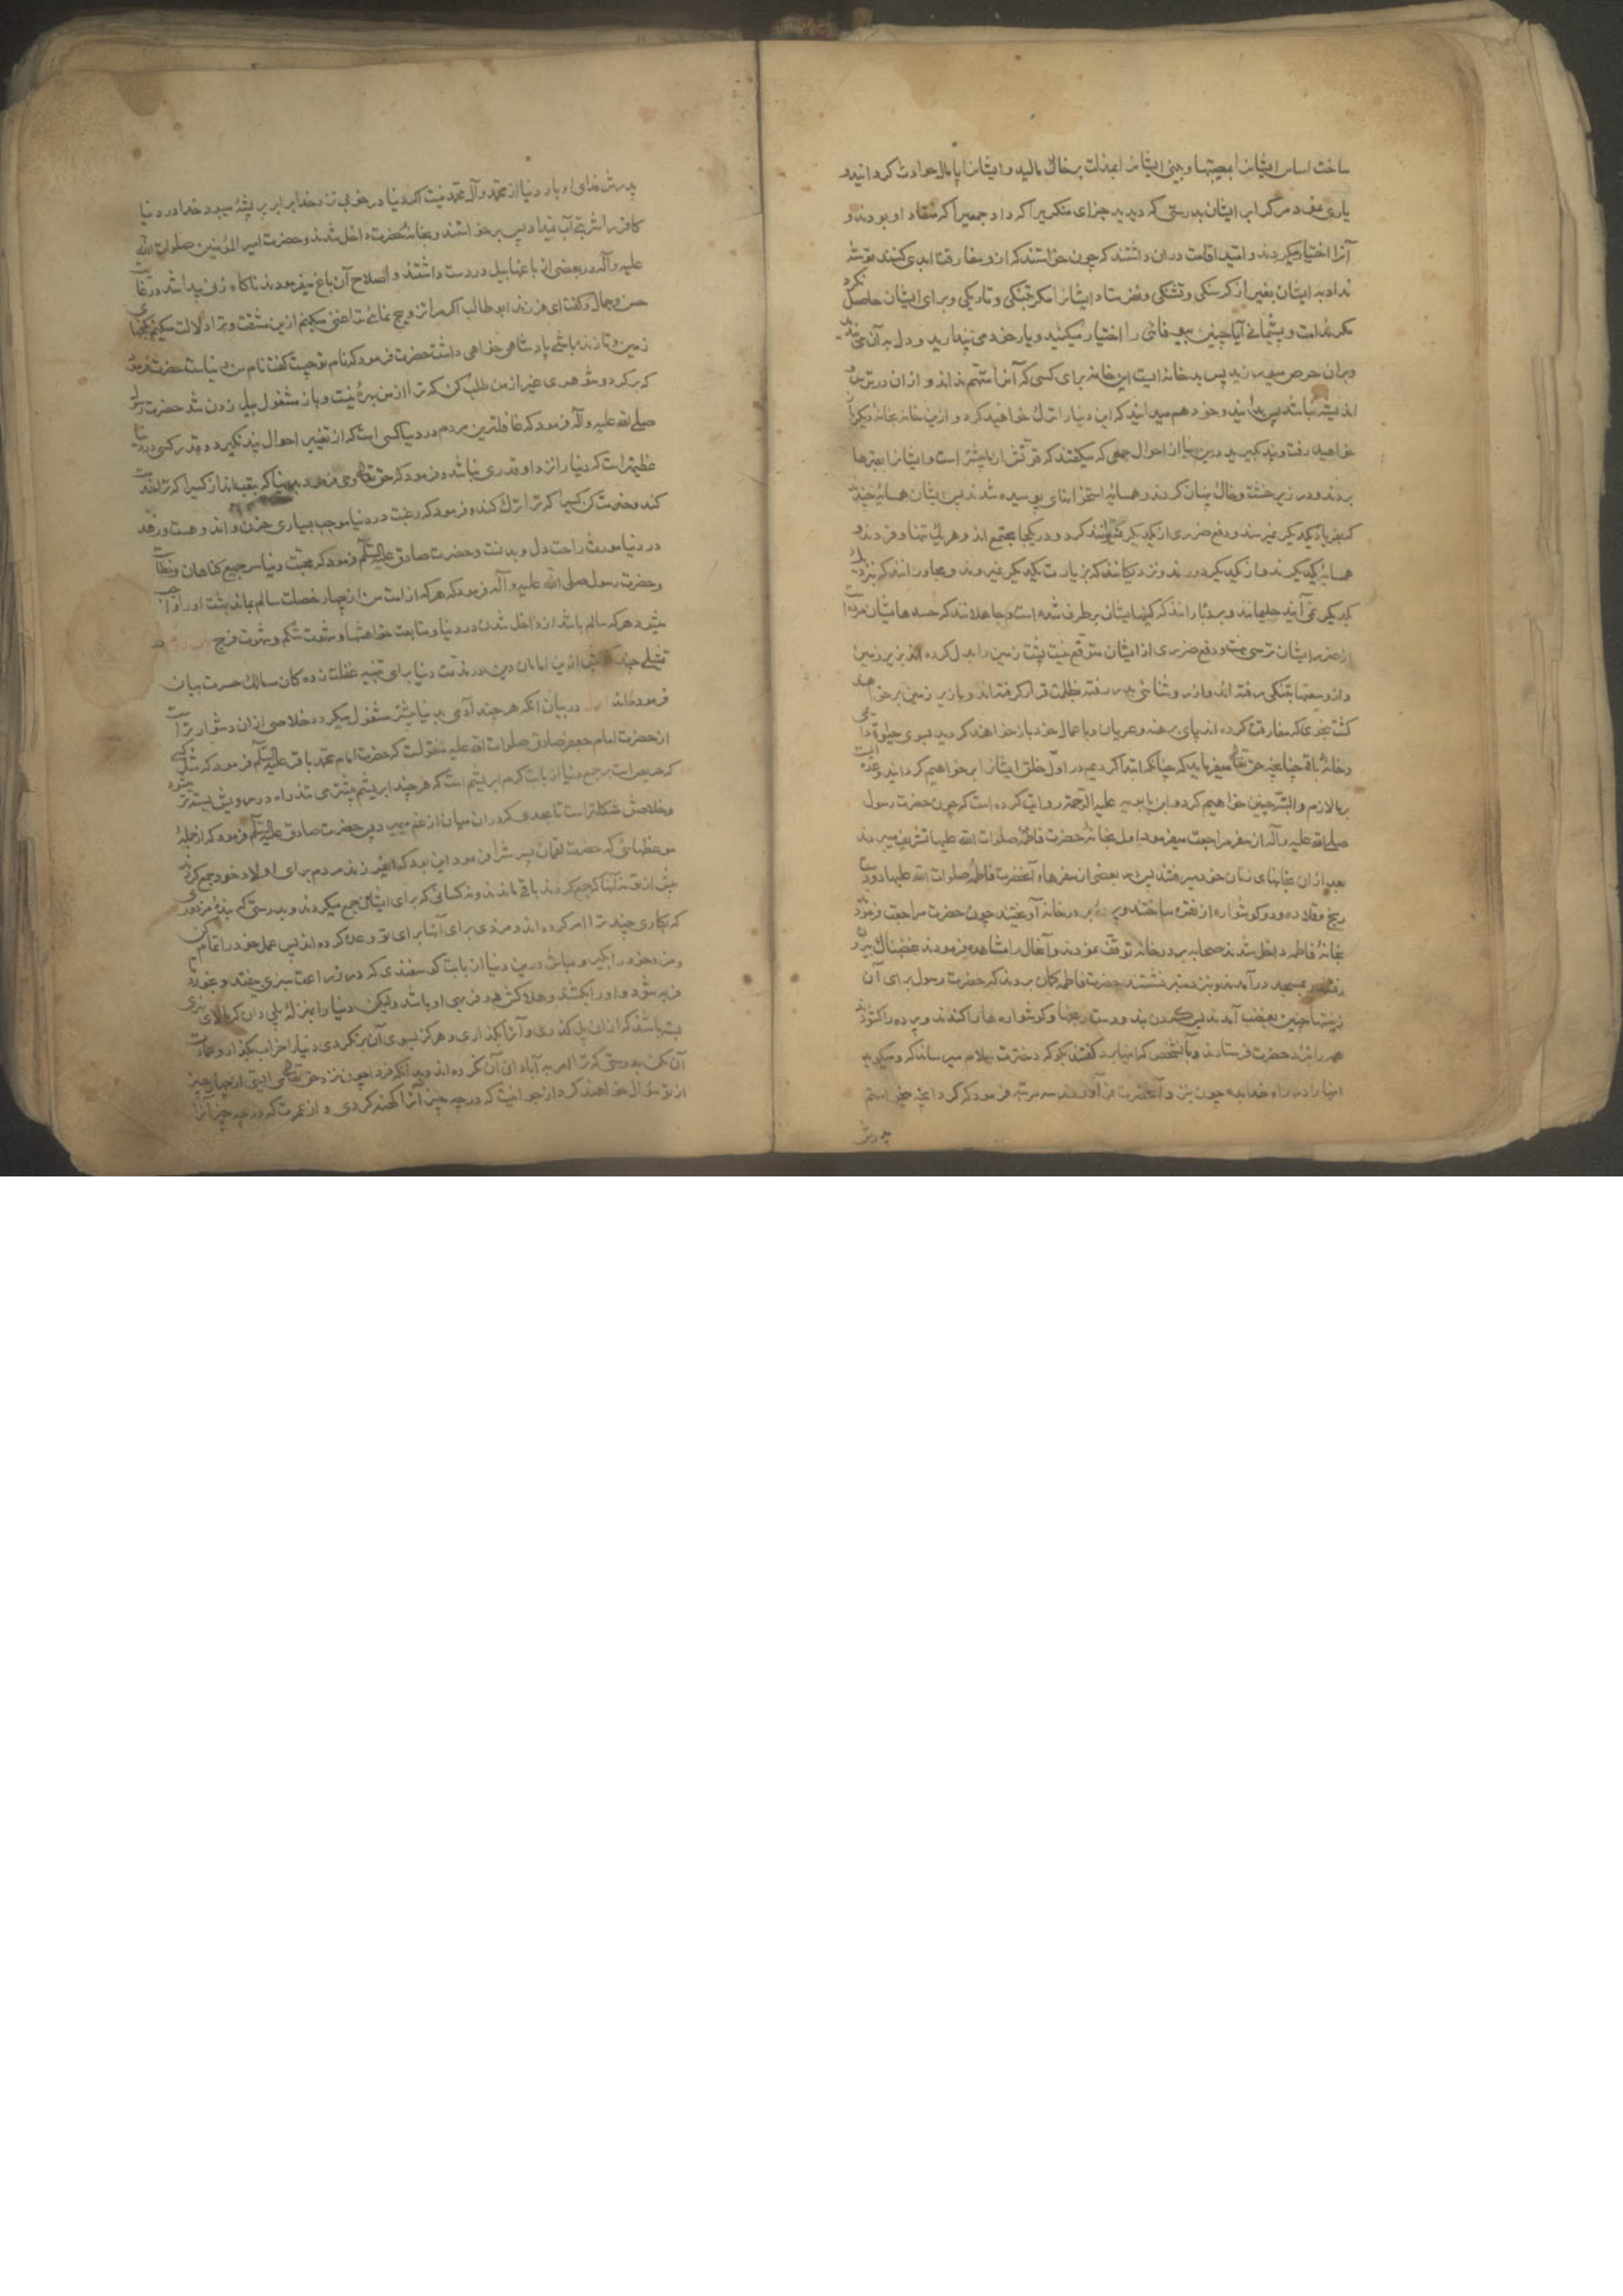 ساخت اساس ایشانرا بمصیبتها و بینی ایشانرا بمذلت بر خاک مالید و ایشانرا پامال حوادث کردانید و
یاری نمود مرک را بر ایشان بدرستی که دیدید جزای متکبر آنرا که داد جمعیرا که منقاد او بودند و
آنرا اختیار میکردند و امید اقامت در ان داشتند که چون خواستند که از و مفارقت ابدی کنند توشه
نداد به ایشان بغیر از کرسنکی و تشنکی و نفرستاد ایشانرا مکر بتنکی و تاریکی و برای ایشان حاصل نکرد
مکر ندامت و پشیمانی آیا چنین بیوفائی را اختیار میکنید و یار خود می پندارید و دل به آن می بندید
و بران حرص میورزید پس بد خانه ایست این خانه برای کسی که آنرا متهم نداند و از ان در ترس و
اندیشه نباشد پس بدانید و خود هم میدانید که این دنیا را ترک خواهید کرد و ازین خانه بخانه دیکر
خواهید رفت و پند بکیرید درین سرا از احوال جمعی که میکفتند که قوّتش از ما بیشتر است و ایشانرا بقبرها
بردند و در زیر خشت و خاک پنهان کردند و همسایهٔ استخوانهای پوسیده شدند پس ایشان همسایهٔ چندند
که بفریاد یکدیکر نمیرسند و دفع ضرری از یکدیکر نمیتوانند کرد و در یکجا مجتمع اند و هر یک تنها و فردند و
همسایهٔ یکدیکرند و از یکدیکر دورند و نزدیکانند که بزیارت یکدیکر نمیروند و مجاورانند که بنزدیک
یکدیکر نمی آیند حلیمانند و بردبارانند که کینهایشان بر طرف شده است و جاهلانند که حسدهایشان مرده است
از ضرر ایشان ترسی نیست و دفع ضرری از ایشان متوقع نیست پشت زمین را بدل کرده اند بزیر زمین
و از وسعتها بتنکی رفته اند و از روشنائی بدر رفته بظلمت قرار کرفته اند و باز بر زمین بر خواهند
کشت بنحوی که مفارقت کرده اند پای برهنه و عریان و با اعمال خود باز خواهند کردید بسوی حیوة دایمی
و خانهٔ باقی چنانچه حق تعالی میفرماید که چنانکه ابتدا کردیم در اول خلق ایشانرا بر خواهیم کردانید وعده ایست
بر ما لازم و البته چنین خواهیم کرد و ابن بابویه علیه الرّحمة روایت کرده است که چون حضرت رسول
صلی الله علیه و آله از سفر مراجعت میفرمود اول بخانهٔ حضرت فاطمه صلوات الله علیها تشریف میبردند
بعد از ان بخانهای زنان خود میرفتند پس در بعضی از سفرهاء آنحضرت فاطمه صلوات الله علیها دو دست
رنج و قلاده و دو کوشواره از نقره ساختند و پرده بر در خانه آویختند چون حضرت مراجعت فرمود
بخانهٔ فاطمه داخل شدند صحابه بر در خانه توقف نمودند و آنحال را مشاهده فرمودند غضبناک بیرون
رفتند و بمسجد در آمدند و بنزد منبر نشستند حضرت فاطمه کمان بردند که حضرت رسول برای آن
زینتها چنین بغضب آمدند پس کردن بند و دست رنجها و کوشوارهها را کندند و پرده را کشودند
همه را بنزد حضرت فرستادند و بآنشخص که اینها برد کفتند بکو که دخترت سلام میرساند که و میکوید
اینها را در راه خدا بده چون بنزد آنحضرت در آوردند سه مرتبه فرمود که کرد آنچه میخواستم
پدرش
پدرش فدای او باد دنیا از محمّد و آل محمّد نیست اکر دنیا در خوبی نزد خدا برابر پر پشهٔ میبود خدا در دنیا
کافر را شربتی آب نمیداد پس برخواستند و بخانهٔ حضرت داخل شدند و حضرت امیر المؤمنین صلوات الله
علیه و آله در بعضی از باغها بیل در دست داشتند و اصلاح آن باغ میفرمودند ناکاه زنی پیدا شد در غایت
حسن و جمال و کفت ای فرزند ابو طالب اکر مرا تزویج نمائی ترا غنی میکنم ازین مشقت و ترا دلالت میکنم بکنجهای
زمین و تا زنده باشی پادشاهی خواهی داشت حضرت فرمود که نام تو چیست کفت نام من دنیاست حضرت فرمود
که برکرد و شوهری غیر از من طلب کن که ترا از من بهرهٔ نیست و باز مشغول بیل زدن شد حضرت رسول
صلی الله علیه و آله فرمود که غافلترین مردم در دنیا کسی است که از تغییر احوال پند نکیرد و قدر کسی در دنیا
عظیم تر است که دنیا را نزد او قدری نباشد و فرمود که حق تعالی وحی فرمود بدنیا که بتعب انداز کسیرا که ترا خدمت
کند و خدمت کن کسیرا که ترا ترک کند و فرمود که رغبت در دنیا موجب بسیاری حزن و اندوهست و زهد
در دنیا مورث راحت دل و بدنست و حضرت صادق علیه السلم فرمود که محبّت دنیا سر جمیع کناهان و خطاهاست
و حضرت رسول صلی الله علیه و آله فرمود که هر که از امّت من از چهار خصلت سالم بماند بهشت او را واجب
میشود هر که سالم باشد از داخل شدن در دنیا و متابعت خواهشها و شهوت شکم و شهوت فرج
تمثیلی چند که ازین امامان دین در مذمت دنیا برای تنبیه غفلت زده کان سالک حسرت بیان
فرموده اند در بیان آنکه هر چند آدمی بدنیا بیشتر مشغول میکردد خلاصی از ان دشوار تر است
از حضرت امام جعفر صادق صلوات الله علیه منقولست که حضرت امام محمّد باقر علیه السلم فرمود که مثل کسی
که حریص است بر جمع دنیا از بابت کرم ابریشم است که هر چند ابریشم بیشتر می تند راه در رویش بسته تر میشود
و خلاصش مشکلتر است تا بحدی که در ان میان از غم میمیرد پس حضرت صادق علیه السلم فرمود که از جملهٔ
موعظهائی که حضرت لقمان پسرش را فرمود این بود که ای فرزند مردم برای اولاد خود جمع کردند
پیش از تو نه آنها که جمع کردند باقی ماندند و نه کسانی که برای ایشان جمع میکردند و بدرستی که تو بندهٔ مزدوری
که بکاری چند ترا امر کرده اند و مزدی برای آنها برای تو وعده کرده اند پس عمل خود را تمام کن
و مزد خود را بکیر و مباش درین دنیا از بابت کوسفندی که در زراعت سبزی بیفتد و بخورد تا
فربه شود و او را بکشند و هلاکش در فربهی او باشد ولیکن دنیا را بمنزلهٔ پلی دان که بر بالای نهری
بسته باشند که از ان پل کذری و آنرا بکذاری و هرکز بسوی آن برنکردی دنیا را خراب بکذار و عمارت
آن مکن بدرستی که ترا امر به آبادانی آن نکرده اند و بدانکه فردا چون نزد حق تعالی بایستی از چهار چیز
از تو سؤال خواهند کرد از جوانیت که در چه چیز آنرا کهنه کردی و از عمرت که در چه چیز آنرا